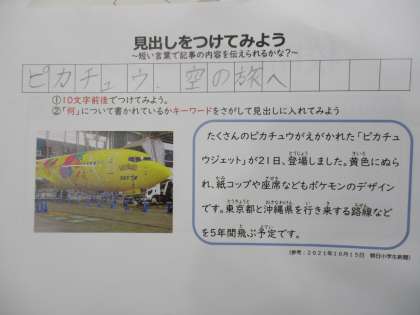 見出しをつけてみよう
~短い言葉で記事の内容を伝えられるかな?~
ピカチュウ.空の旅へ
①10文字前後でつけてみよう。
②「何」について書かれているかキーワードをさがして見出しに入れてみよう
たくさんのピカチュウがえがかれた「ピカチュ
ウジェット」が21日、登場しました。黄色にぬら
れ、紙コップや座席などもポケモンのデザイン
です。東京都と沖縄県を行き来する路線など
を5年間飛ぶ予定です。
(参考:2021年10月15日 朝日小学生新聞)